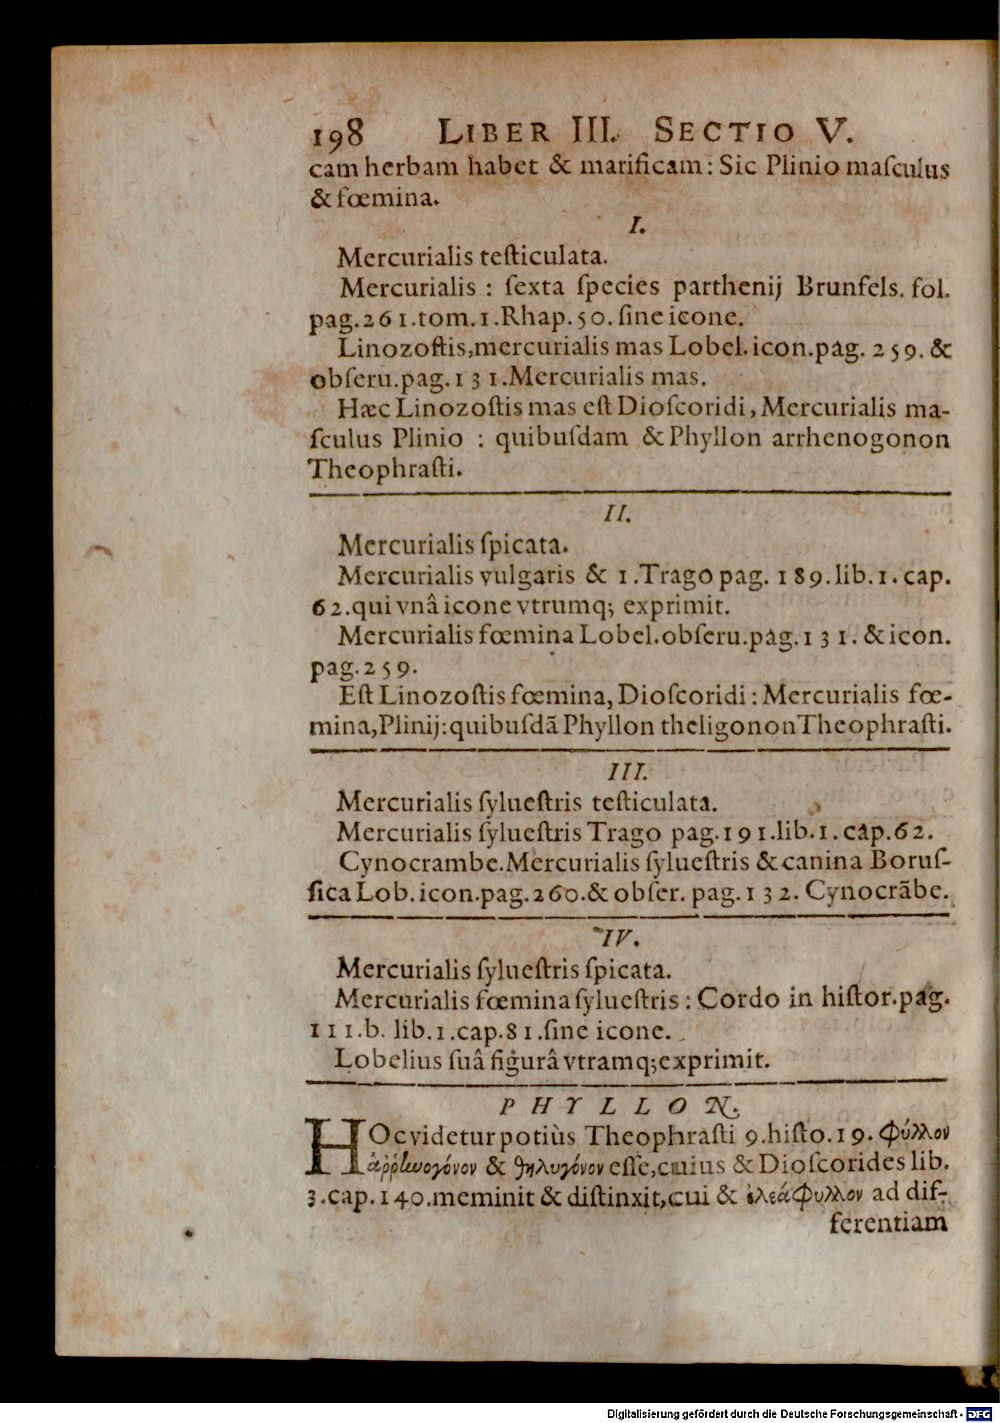 198 LIBER III. SECTIO V.
cam herbam habet & marificam: Sic Plinio maſculus
& fœmina.
I.
Mercurialis teſticulata.
Mercurialis : ſexta ſpecies parthenij Brunfels. fol.
pag. 261. tom. 1. Rhap. 50. ſine icone.
Linozoſtis, mercurialis mas Lobel. icon. pag. 259. &
obſeru. pag. 131. Mercurialis mas.
Hæc Linozoſtis mas eſt Dioſcoridi, Mercurialis ma-
ſculus Plinio : quibuſdam & Phyllon arrhenogonon
Theophraſti.
II.
Mercurialis ſpicata.
Mercurialis vulgaris & 1. Trago pag. 189. lib. 1. cap.
62. qui vnâ icone vtrumq; exprimit.
Mercurialis fœmina Lobel. obſeru. pag. 131. & icon.
pag. 259.
Eſt Linozoſtis fœmina, Dioſcoridi : Mercurialis fœ-
mina, Plinij: quibuſdã Phyllon theligonon Theophraſti.
III.
Mercurialis ſylueſtris teſticulata.
Mercurialis ſylueſtris Trago pag. 191. lib. 1. cap. 62.
Cynocrambe. Mercurialis ſylueſtris & canina Boruſ-
ſica Lob. icon. pag. 260. & obſer. pag. 132. Cynocrãbe.
IV.
Mercurialis ſylueſtris ſpicata.
Mercurialis fœmina ſylueſtris : Cordo in hiſtor. pag.
111. b. lib. 1. cap. 81. ſine icone.
Lobelius ſuâ figurâ vtramq; exprimit.
PHYLLON.
HOc videtur potiùs Theophraſti 9. hiſto. 19. φύλλον
ἀῤῥενογόνον & θηλυγόνον eſſe, cuius & Dioſcorides lib.
3. cap. 140. meminit & diſtinxit, cui & ἐλεάφυλλον ad dif-
ferentiam
Digitalisierung gefördert durch die Deutsche Forschungsgemeinschaft - DFG